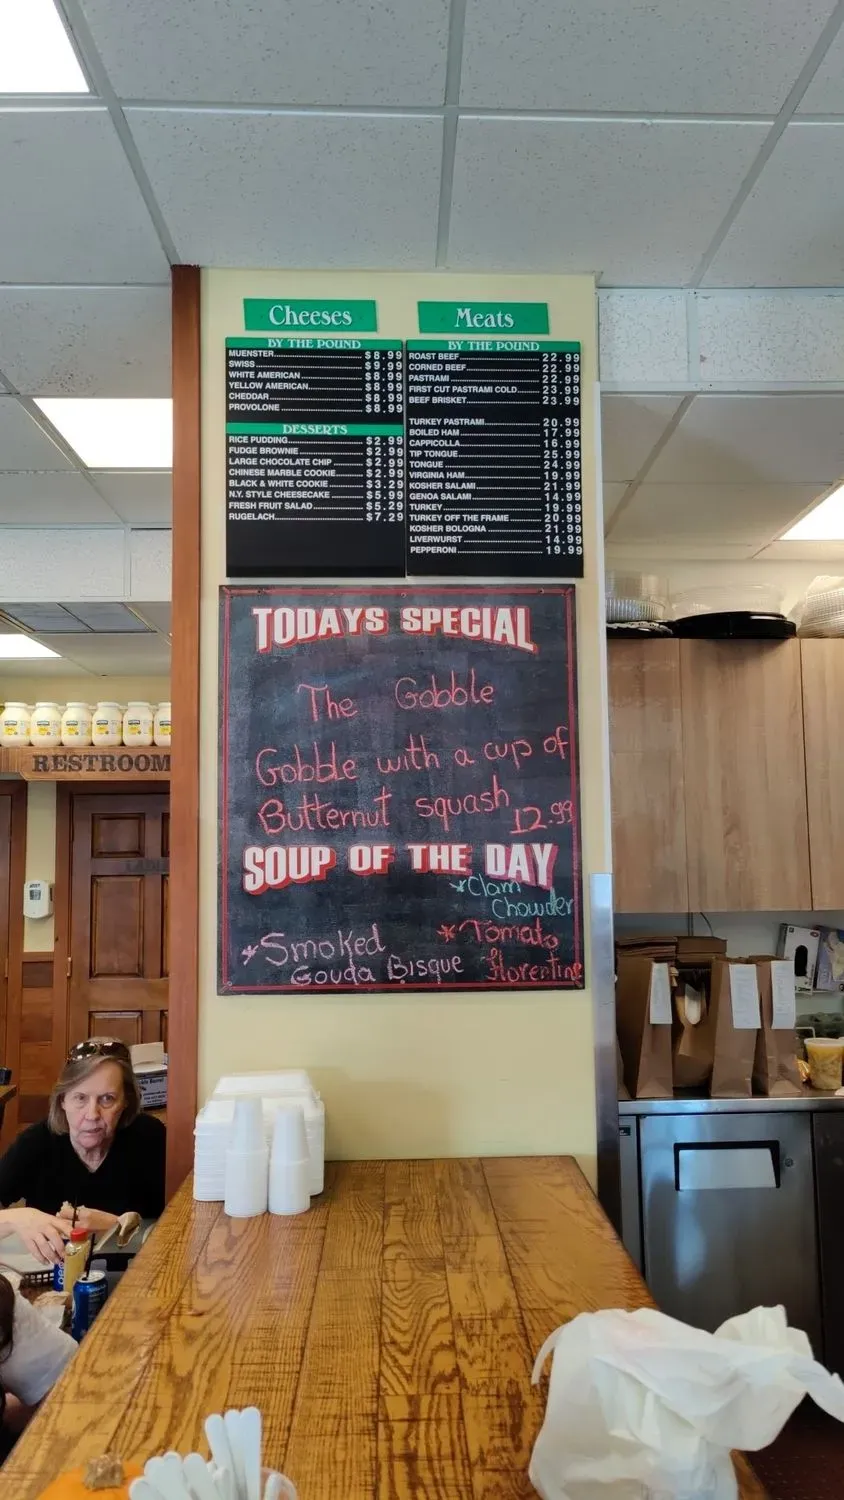 Cheeses
BY THE POUND
MUENSTER $8.99
SWISS $9.99
WHITE AMERICAN $8.99
YELLOW AMERICAN $8.99
CHEDDAR $8.99
PROVOLONE $8.99
DESSERTS
RICE PUDDING $2.99
FUDGE BROWNIE $2.99
LARGE CHOCOLATE CHIP $2.99
CHINESE MARBLE COOKIE $2.99
BLACK & WHITE COOKIE $3.29
N.Y. STYLE CHEESECAKE $5.99
FRESH FRUIT SALAD $5.29
RUGELACH $7.29
Meats
BY THE POUND
ROAST BEEF 22.99
CORNED BEEF 22.99
PASTRAMI 22.99
FIRST CUT PASTRAMI COLD 23.99
BEEF BRISKET 23.99
TURKEY PASTRAMI 20.99
BOILED HAM 17.99
CAPPICOLLA 16.99
TIP TONGUE 25.99
TONGUE 24.99
VIRGINIA HAM 19.99
KOSHER SALAMI 21.99
GENOA SALAMI 14.99
TURKEY 19.99
TURKEY OFF THE FRAME 20.99
KOSHER BOLOGNA 21.99
LIVERWURST 14.99
PEPPERONI 19.99
TODAYS SPECIAL
The Gobble
Gobble with a cup of
Butternut squash 12.99
SOUP OF THE DAY
*Clam
Chowder
*Smoked
Gouda Bisque
*Tomato
Florentine
RESTROOM